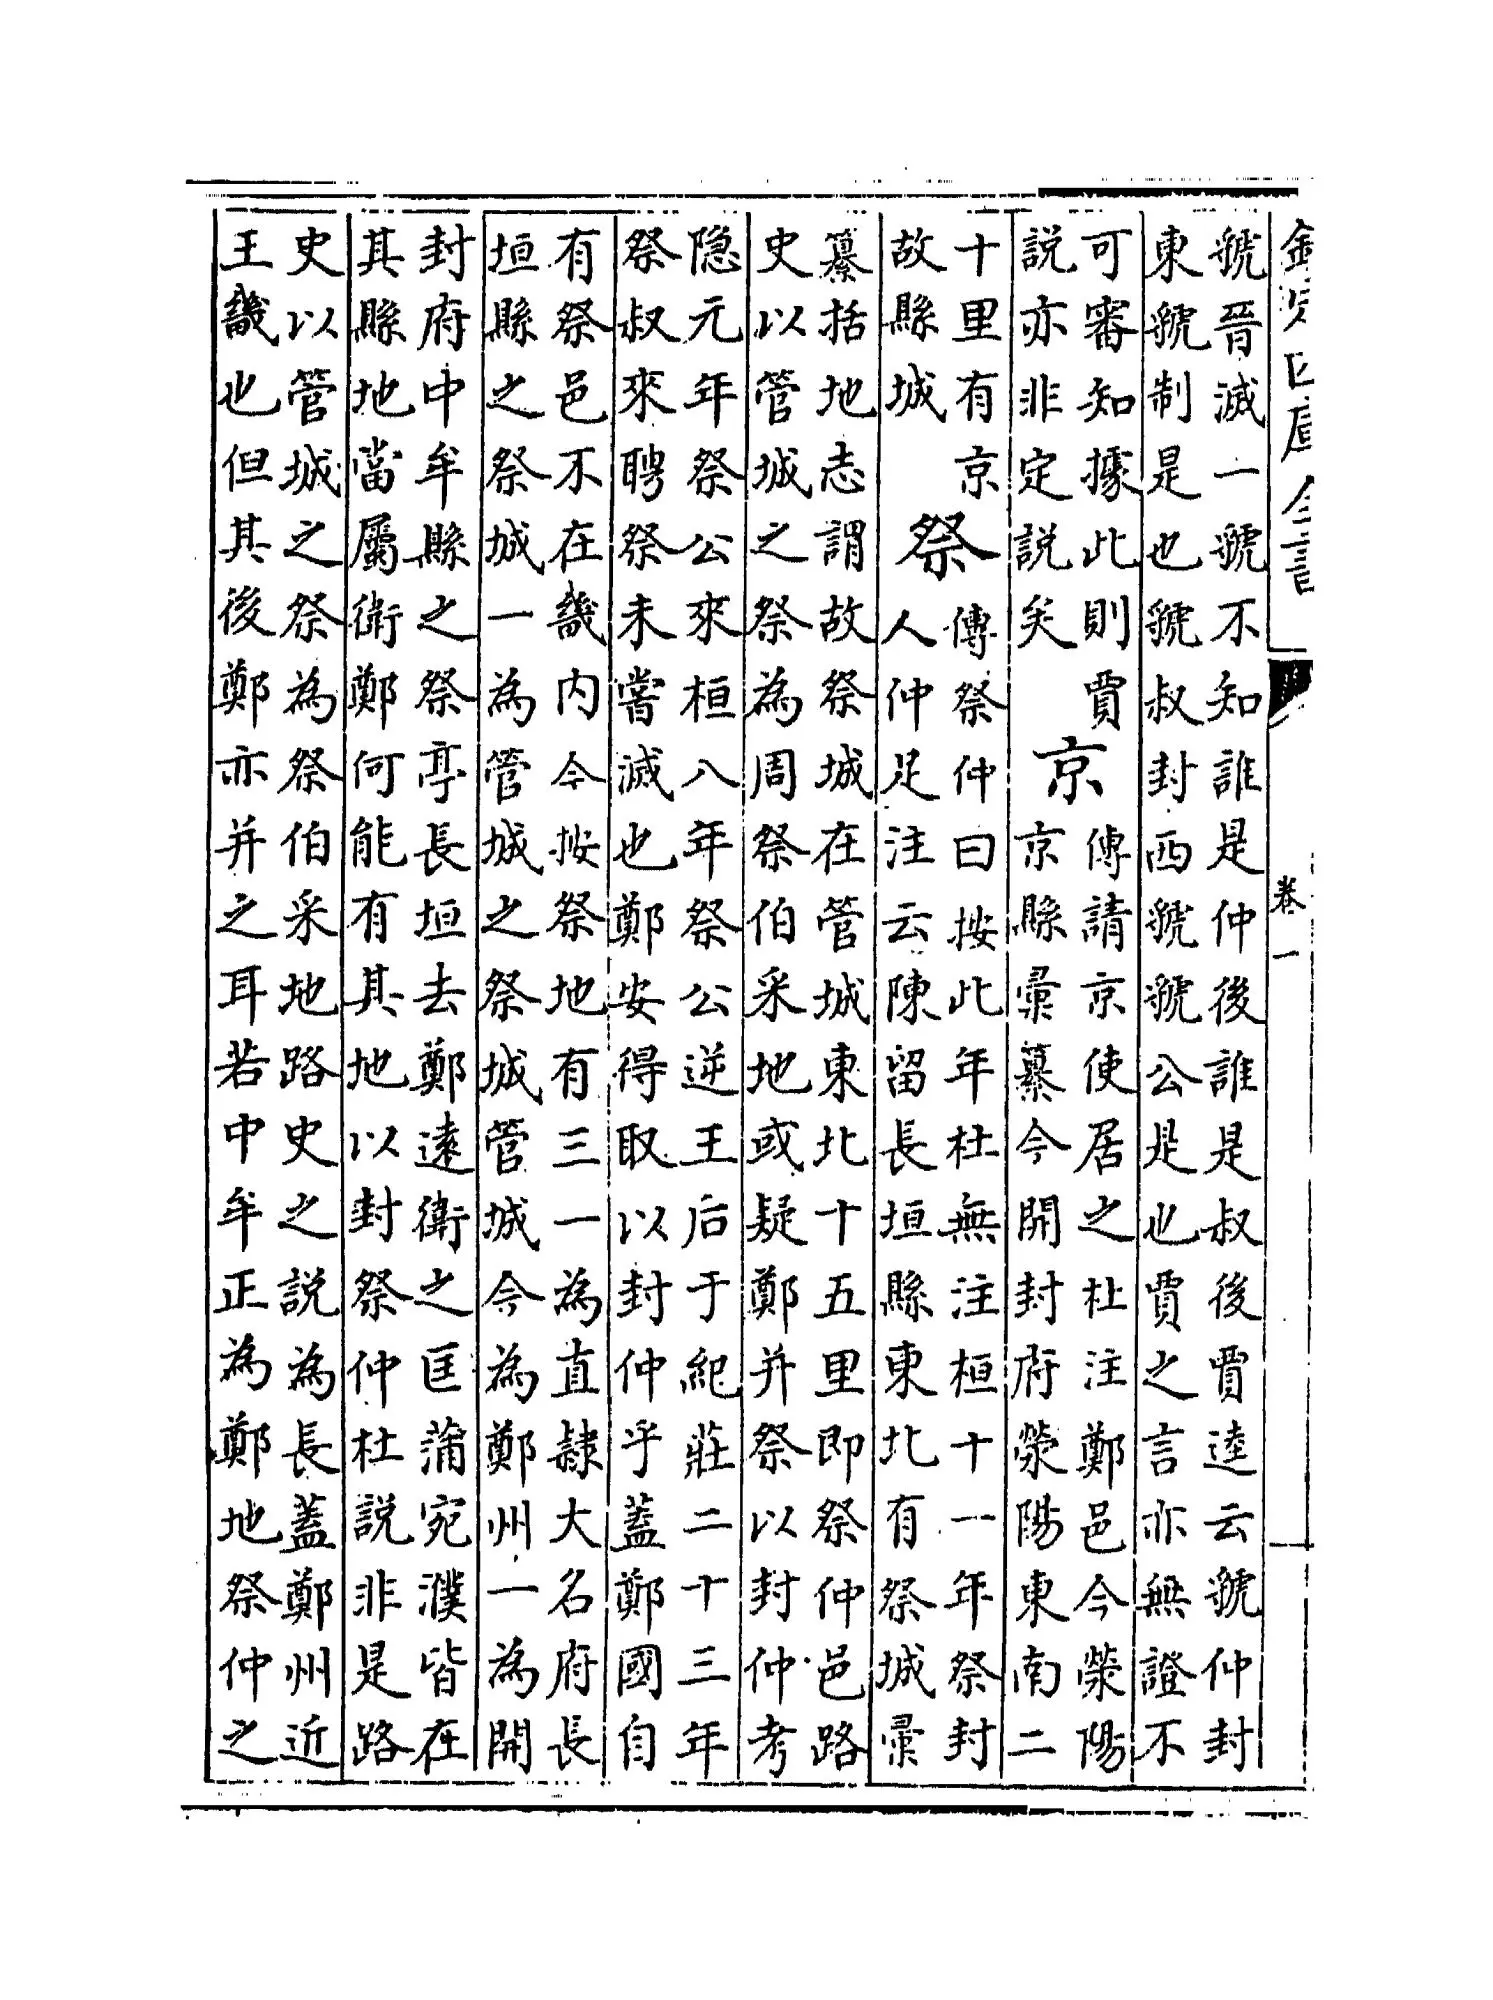 欽定四庫全書
卷一
虢晉滅一虢不知誰是仲後誰是叔後賈逵云虢仲封
東虢制是也虢叔封西虢虢公是也賈之言亦無證不
可審知據此則賈
説亦非定説矣
京
傳請京使居之杜注鄭邑今滎陽
京縣彚纂今開封府滎陽東南二
十里有京
故縣城
祭
傳祭仲曰按此年杜無注桓十一年祭封
人仲足注云陳留長垣縣東北有祭城彚
纂括地志謂故祭城在管城東北十五里即祭仲邑路
史以管城之祭為周祭伯采地或疑鄭并祭以封仲考
隐元年祭公來桓八年祭公逆王后于紀莊二十三年
祭叔來聘祭未嘗滅也鄭安得取以封仲乎蓋鄭國自
有祭邑不在畿内今按祭地有三一為直隷大名府長
垣縣之祭城一為管城之祭城管城今為鄭州一為開
封府中牟縣之祭亭長垣去鄭遠衛之匡蒲宛濮皆在
其縣地當屬衛鄭何能有其地以封祭仲杜説非是路
史以管城之祭為祭伯采地路史之説為長蓋鄭州近
王畿也但其後鄭亦并之耳若中牟正為鄭地祭仲之